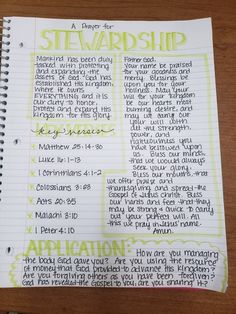 A Prayer for
STEWARDSHIP
Mankind has been duly
tasked with protecting
and expanding the
assets of God. God has
established His Kingdom
where He owns
EVERYTHING and it is
our duty to honor,
protect and expand His
Kingdom for His glory.
key verses
x Matthew 25:14-30
x Luke 16:1-13
x 1 Corinthians 4:1-2
x Colossians 3:23
x Acts 20:35
x Malachi 3:10
x 1 Peter 4:10
Father God,
Your name be praised
for your goodness and
mercy. Blessings be
upon you for your
Holiness. May your
will for your kingdom
be our hearts most
burning desire, and
may we carry out
your will with
all the strength,
power, and
righteousness you
have bestowed upon
us. Bless our minds
that we would always
seek your glory.
Bless our mouths, that
we offer praise and
thanksgiving and spread the
Gospel of Jesus Christ. Bless
our hands and feet that they
may be strong & quick to carry
out your perfect will. All
this we pray in Jesus name.
Amen.
APPLICATION: How are you managing
the body God gave you? Are you using the resource
of money that God provided to advance His Kingdom?
Are you forgiving others as you have been forgiven?
God has revealed the Gospel to you; are you sharing it?